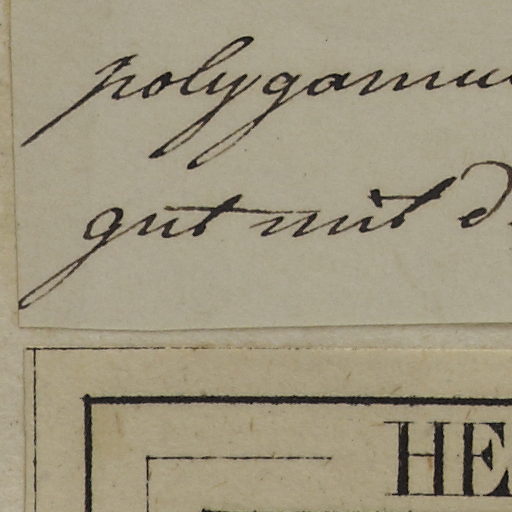 polygamu
gut mit d
HE